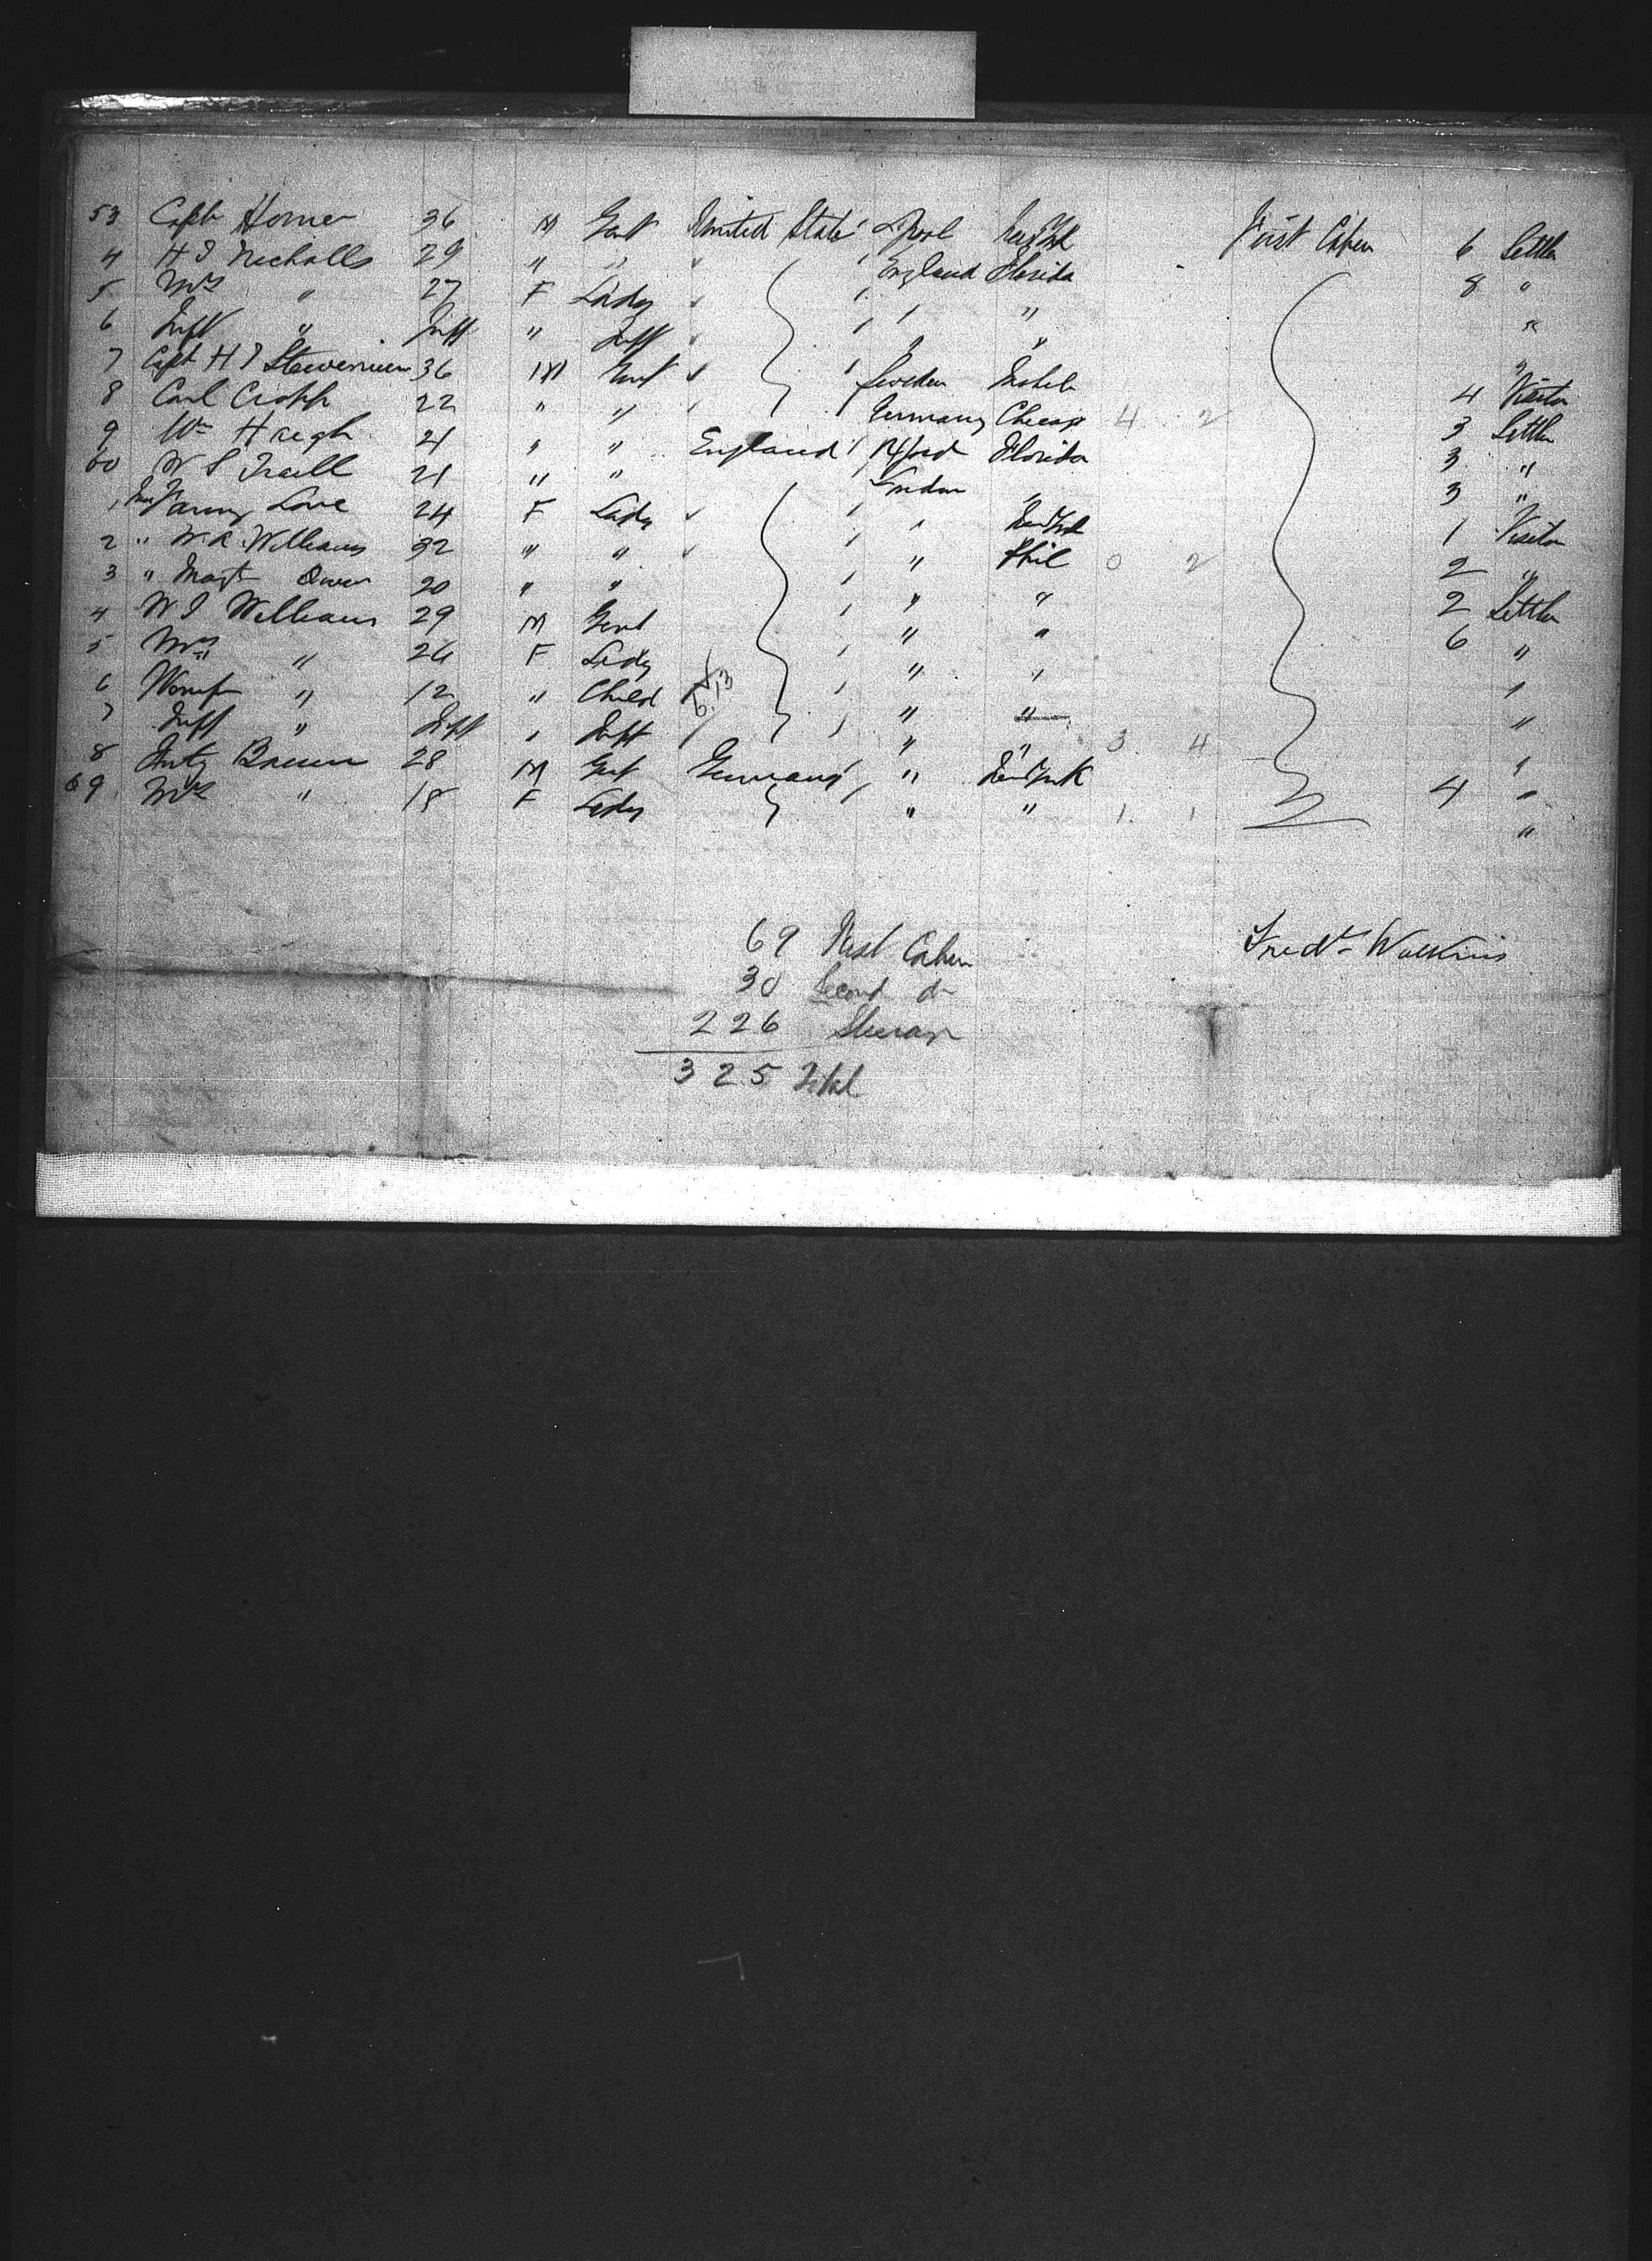 53 Capt Horner 36 M Gent United States L'Pool New York First Cabin 6 Settler
4 H J Nicholls 29 " " England Florida 8 "
5 Mrs " 27 F Lady " " "
6 Inft " Inft " Inft " " "
7 Capt H J 36 M Gent Sweden Mobile 4 Visitor
8 Carl Cropp 22 " " Germany Chicago 4 2 3 Settler
9 Wm Haigh 21 " " England Florida 3 "
60 W S Traill 21 " " London " 3 "
1 Mrs Fanny Love 24 F Lady " New York 1 Visitor
2 " W. R. Williams 32 " " " Phil 0 2 2 "
3 " Magt Owen 20 " " " " 2 Settler
4 W J Williams 29 M Gent " " 6 "
5 Mrs " 26 F Lady " " "
6 " 12 " Child " " "
7 Inft " Inft " Inft " " 3 4 "
8 Braun 28 M Gent Germany " New York 4 "
69 Mrs " 18 F Lady " " 1 1 "
6.13
69 First Cabin
30 Second do
226 Steerage
325 Total
Fredk Watkins